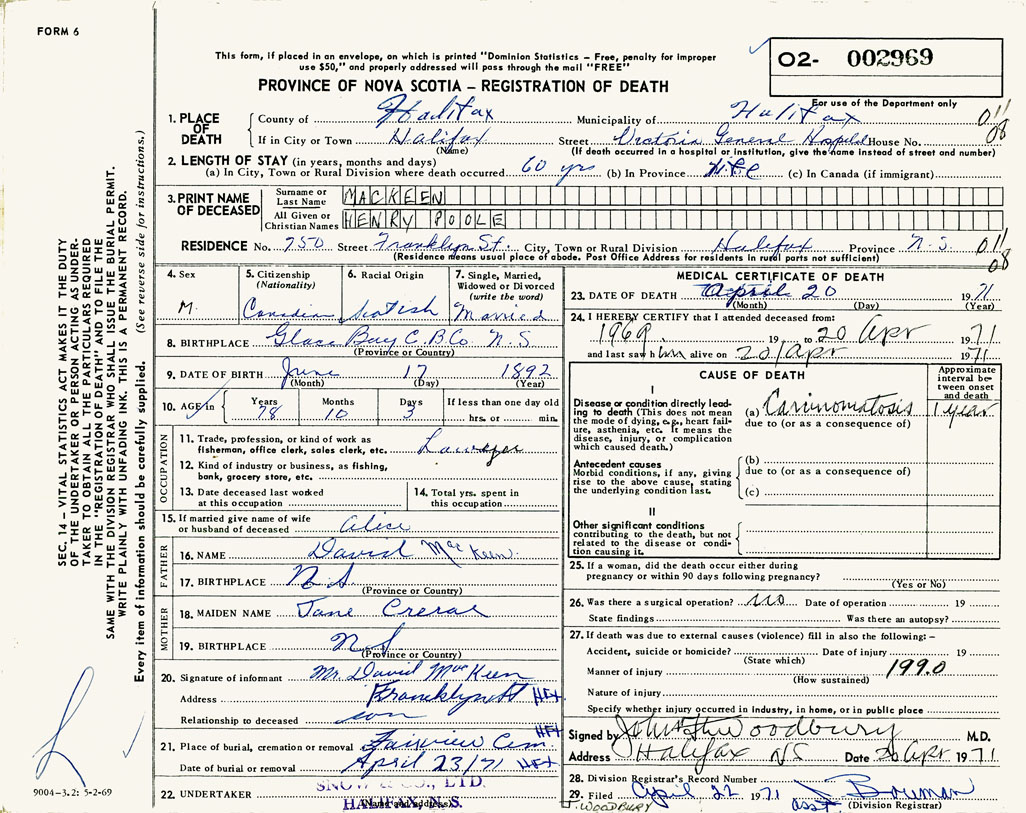 FORM 6
This form, if placed in an envelope, on which is printed "Dominion Statistics – Free, penalty for improper
use $50," and properly addressed will pass through the mail "FREE"
O2- 002969
PROVINCE OF NOVA SCOTIA – REGISTRATION OF DEATH
For use of the Department only
1. PLACE OF DEATH County of Halifax Municipality of Halifax 011
If in City or Town Halifax Street Victoria General Hospital House No. 08
(Name) (If death occurred in a hospital or institution, give the name instead of street and number)
2. LENGTH OF STAY (in years, months and days)
(a) In City, Town or Rural Division where death occurred 60 yrs (b) In Province Life (c) In Canada (if immigrant)
3. PRINT NAME OF DECEASED Surname or Last Name MACKEEN
All Given or Christian Names HENRY POOLE
RESIDENCE No. 750 Street Franklyn St. City, Town or Rural Division Halifax Province N.S. 011
(Residence means usual place of abode. Post Office Address for residents in rural parts not sufficient) 08
4. Sex 5. Citizenship (Nationality) 6. Racial Origin 7. Single, Married, Widowed or Divorced (write the word)
M. Canadian Scotish Married
8. BIRTHPLACE Glace Bay C.B.Co. N.S
(Province or Country)
9. DATE OF BIRTH June 17 1892
(Month) (Day) (Year)
10. AGE in Years 78 Months 10 Days 3 If less than one day old hrs. or min.
OCCUPATION
11. Trade, profession, or kind of work as fisherman, office clerk, sales clerk, etc. Lawyer
12. Kind of industry or business, as fishing, bank, grocery store, etc.
13. Date deceased last worked at this occupation
14. Total yrs. spent in this occupation
15. If married give name of wife or husband of deceased Alice
FATHER
16. NAME David MacKeen
17. BIRTHPLACE N S
(Province or Country)
MOTHER
18. MAIDEN NAME Jane Crerar
19. BIRTHPLACE N S
(Province or Country)
20. Signature of informant Mr. David MacKeen
Address Franklyn St Hfx
Relationship to deceased son
21. Place of burial, cremation or removal Fairview Cem Hfx
Date of burial or removal April 23/71 Hfx
22. UNDERTAKER SNOW & CO., LTD.
HALIFAX, N.S.
(Name and address)
MEDICAL CERTIFICATE OF DEATH
23. DATE OF DEATH April 20 1971
(Month) (Day) (Year)
24. I HEREBY CERTIFY that I attended deceased from:
1969 19 to 20 Apr 1971
and last saw him alive on 20/Apr 1971
CAUSE OF DEATH
Approximate interval between onset and death
I
Disease or condition directly leading to death (This does not mean the mode of dying, e.g., heart failure, asthenia, etc. It means the disease, injury, or complication which caused death.)
(a) Carcinomatosis 1 year
due to (or as a consequence of)
Antecedent causes
Morbid conditions, if any, giving rise to the above cause, stating the underlying condition last.
(b)
due to (or as a consequence of)
(c)
II
Other significant conditions contributing to the death, but not related to the disease or condition causing it.
25. If a woman, did the death occur either during pregnancy or within 90 days following pregnancy?
(Yes or No)
26. Was there a surgical operation? no Date of operation 19
State findings Was there an autopsy?
27. If death was due to external causes (violence) fill in also the following: –
Accident, suicide or homicide? Date of injury 19
(State which)
Manner of injury 199.0
(How sustained)
Nature of injury
Specify whether injury occurred in industry, in home, or in public place
Signed by Woodbury M.D.
Address Halifax NS Date 20 Apr 1971
28. Division Registrar's Record Number
29. Filed April 22 1971 asst J. Bowman
WOODBURY (Division Registrar)
SEC. 14 – VITAL STATISTICS ACT MAKES IT THE DUTY
OF THE UNDERTAKER OR PERSON ACTING AS UNDER-
TAKER TO OBTAIN ALL THE PARTICULARS REQUIRED
IN THE "REGISTRATION OF DEATH" AND TO FILE THE
SAME WITH THE DIVISION REGISTRAR WHO SHALL ISSUE THE BURIAL PERMIT.
WRITE PLAINLY WITH UNFADING INK. THIS IS A PERMANENT RECORD.
Every item of information should be carefully supplied. (See reverse side for instructions.)
9004-3.2: 5-2-69